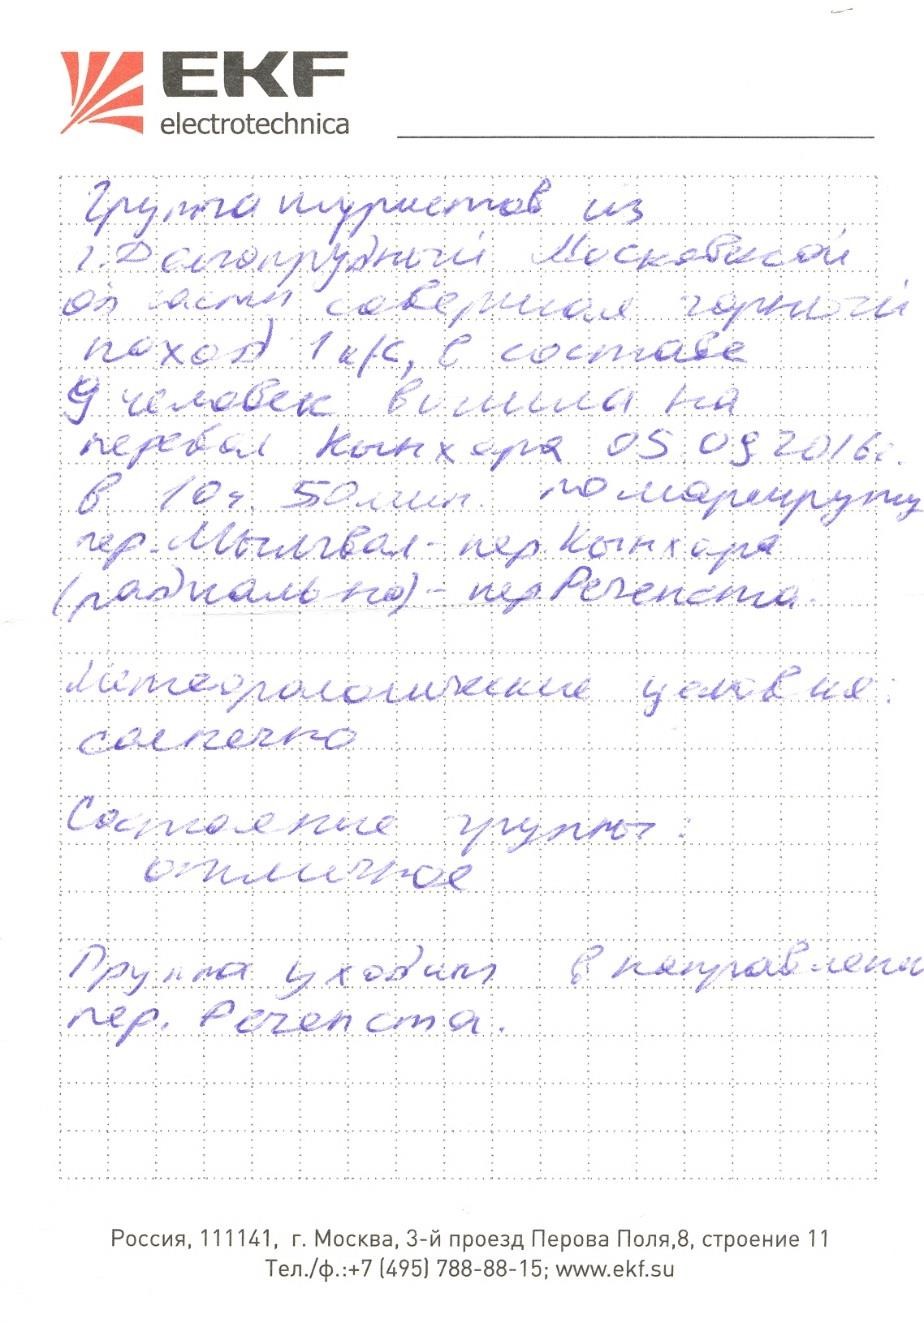 EKF
electrotechnica
Группа туристов из
г. Долгопрудный Московской
области совершая горный
поход 1 к/с, в составе
9 человек вышла на
перевал Кынхара 05 09 2016г.
в 10ч. 50мин. по маршруту
пер. Мылгвал - пер. Кынхара
(радиально) - пер Речепста.
Метеорологические условия:
солнечно
Состояние группы:
отличное
Группа уходит в направлении
пер. Речепста.
Россия, 111141, г. Москва, 3-й проезд Перова Поля,8, строение 11
Тел./ф.:+7 (495) 788-88-15; www.ekf.su